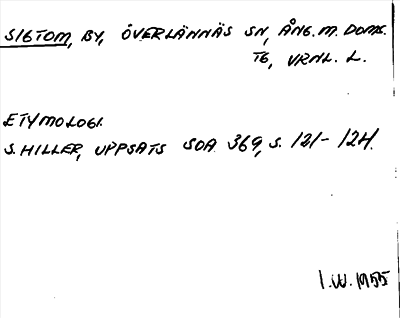 SIGTOM, BY, ÖVERLÄNNÄS SN, ÅNG. M. DOMS.
TG, VRNL. L.
ETYMOLOGI.
S. HILLER, UPPSATS SOA 369, S. 121-124.
I.W. 1955